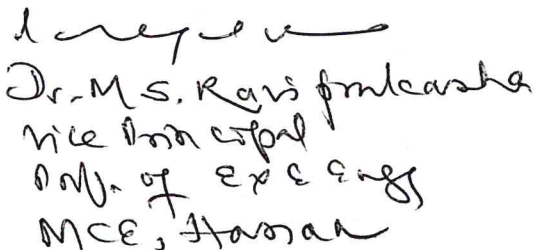 Dr. M S. Ravi prakasha
Vice Principal
Prof. of E & C Engg
MCE, Hassan